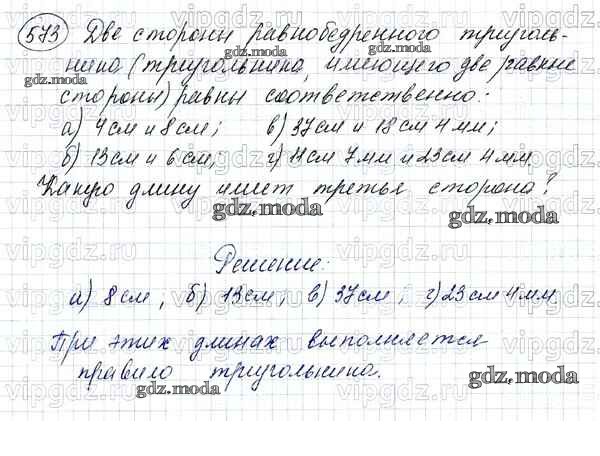 573 Две стороны равнобедренного треуголь-
ника (треугольника, имеющего две равные
стороны) равны соответственно:
а) 4см и 8см; в) 37см и 18см 4мм;
б) 13см и 6см; г) 11см 7мм и 23см 4мм.
Какую длину имеет третья сторона?
Решение:
а) 8см, б) 13см, в) 37см, г) 23см 4мм.
При этих длинах выполняется
правило треугольника.
gdz.moda
vipgdz.ru